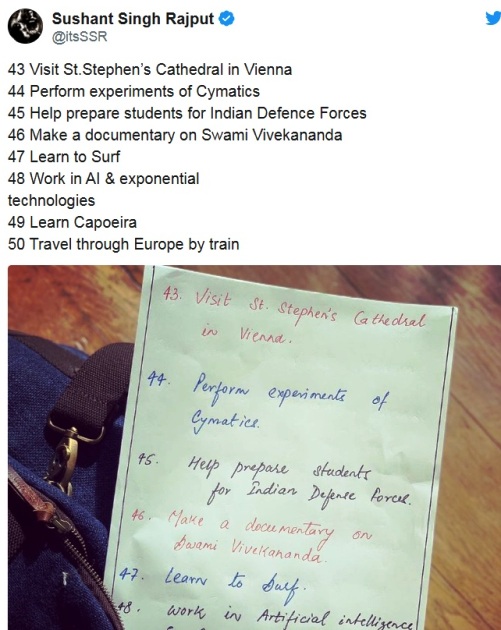 Sushant Singh Rajput
@itsSSR
43 Visit St.Stephen's Cathedral in Vienna
44 Perform experiments of Cymatics
45 Help prepare students for Indian Defence Forces
46 Make a documentary on Swami Vivekananda
47 Learn to Surf
48 Work in AI & exponential
technologies
49 Learn Capoeira
50 Travel through Europe by train
43. Visit St. Stephen's Cathedral
in Vienna.
44. Perform experiments of
Cymatics.
45. Help prepare students
for Indian Defense Forces.
46. Make a documentary on
Swami Vivekananda.
47. Learn to Surf.
48. Work in Artificial intelligence